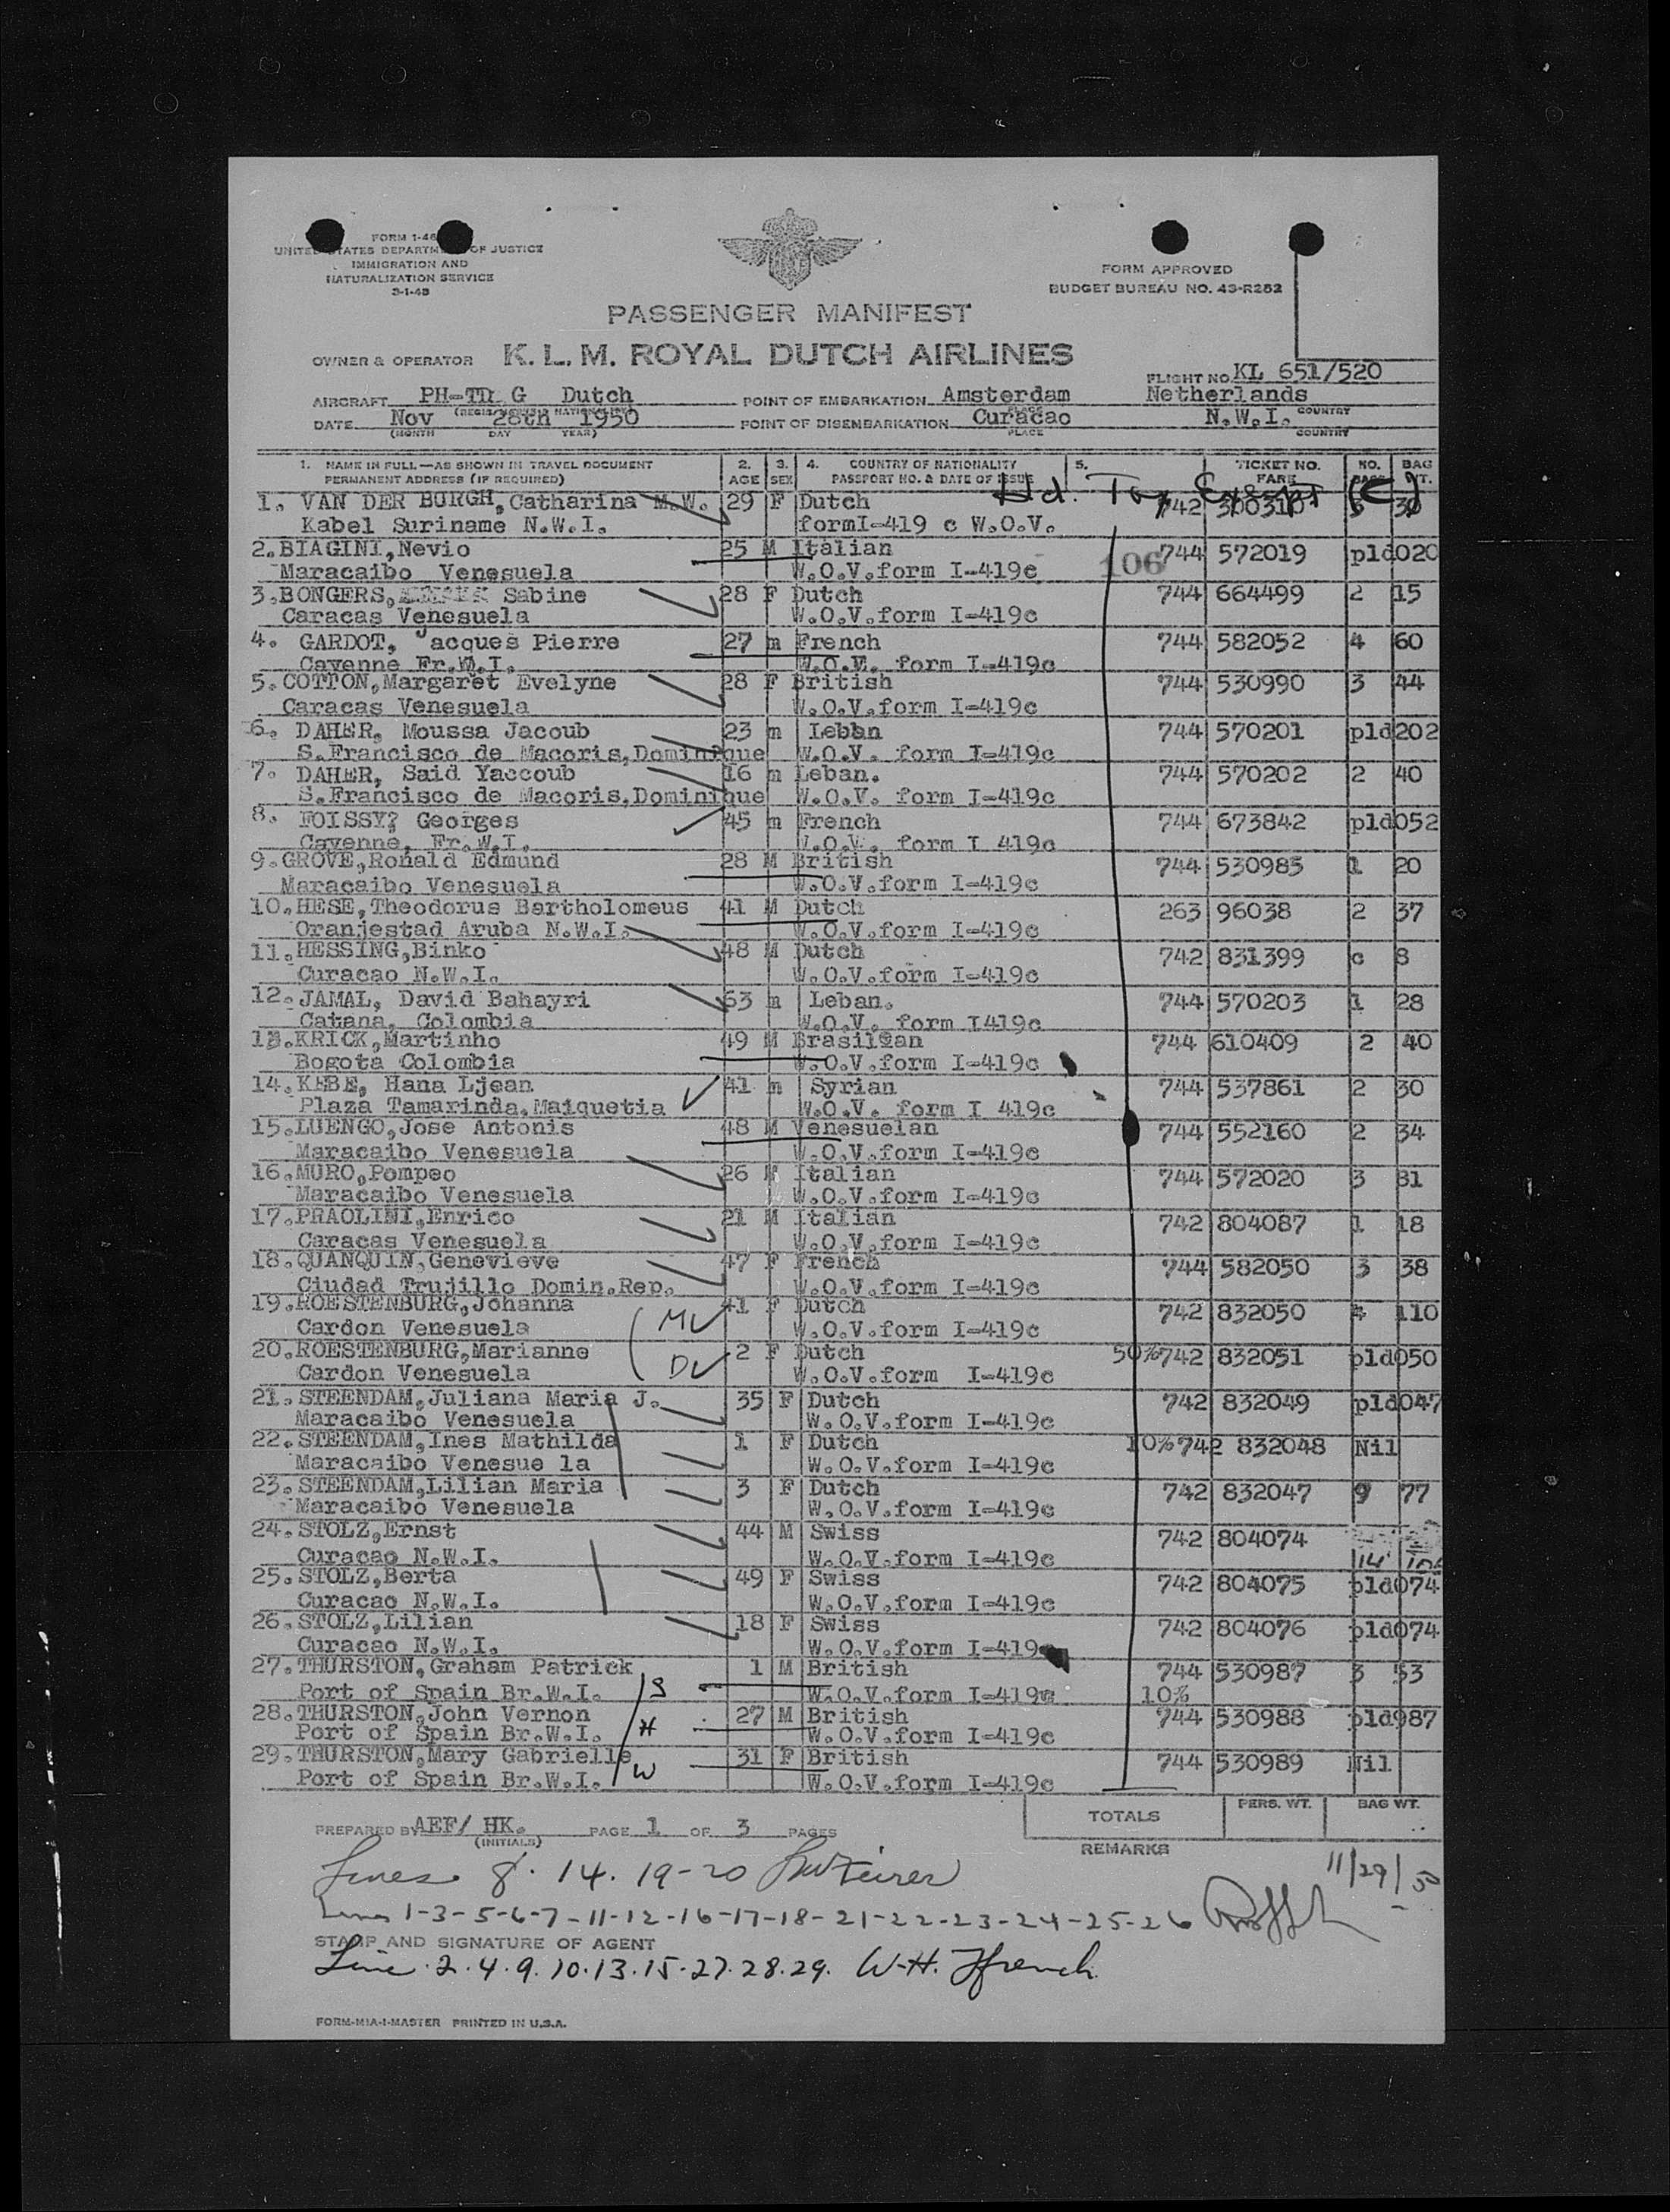 FORM 1-46
UNITED STATES DEPARTMENT OF JUSTICE
IMMIGRATION AND
NATURALIZATION SERVICE
FORM APPROVED
BUDGET BUREAU NO. 43-R252
PASSENGER MANIFEST
OWNER & OPERATOR K. L. M. ROYAL DUTCH AIRLINES
FLIGHT NO. KL 651/520
AIRCRAFT PH-TD G Dutch POINT OF EMBARKATION Amsterdam Netherlands
DATE Nov 28th 1950 POINT OF DISEMBARKATION Curacao N.W.I.
(MONTH DAY YEAR) PLACE COUNTRY
1. NAME IN FULL—AS SHOWN IN TRAVEL DOCUMENT 2. 3. 4. COUNTRY OF NATIONALITY 5. TICKET NO. NO. BAG
PERMANENT ADDRESS (IF REQUIRED) AGE SEX PASSPORT NO. & DATE OF ISSUE FARE WT.
Hd. Tax Exempt (E)
1. VAN DER BURGH, Catharina M.W. 29 F Dutch 742 300310
Kabel Suriname N.W.I. formI-419 c W.O.V.
2. BIAGINI, Nevio 25 M Italian 106 744 572019 pld020
Maracaibo Venesuela W.O.V.form I-419c
3. BONGERS, Sabine 28 F Dutch 744 664499 2 15
Caracas Venesuela W.O.V.form I-419c
4. GARDOT, Jacques Pierre 27 m French 744 582052 4 60
Cayenne Fr.W.I. form I-419c
5. COTTON, Margaret Evelyne 28 F British 744 530990 3 44
Caracas Venesuela W.O.V.form I-419c
6. DAHER, Moussa Jacoub 23 m Leban 744 570201 pld202
S.Francisco de Macoris, Dominique W.O.V. form I-419c
7. DAHER, Said Yaccoub 16 m Leban. 744 570202 2 40
S.Francisco de Macoris, Dominique W.O.V. form I-419c
8. FOISSY? Georges 45 m French 744 673842 pld052
Cayenne, Fr.W.I. W.O.V. form I 419c
9. GROVE, Ronald Edmund 28 M British 744 530985 1 20
Maracaibo Venesuela W.O.V.form I-419c
10. HESE, Theodorus Bartholomeus 41 M Dutch 263 96038 2 37
Oranjestad Aruba N.W.I. W.O.V.form I-419c
11. HESSING, Binko 48 M Dutch 742 831399 c 8
Curacao N.W.I. W.O.V.form I-419c
12. JAMAL, David Bahayri 63 m Leban. 744 570203 1 28
Catana, Colombia W.O.V. form I419c
13. KRICK, Martinho 49 M Brasilian 744 610409 2 40
Bogota Colombia W.O.V.form I-419c
14. KEBE, Hana Ljean 41 m Syrian 744 537861 2 30
Plaza Tamarinda, Maiquetia W.O.V. form I 419c
15. LUENGO, Jose Antonis 48 M Venesuelan 744 552160 2 34
Maracaibo Venesuela W.O.V.form I-419c
16. MURO, Pompeo 26 M Italian 744 572020 3 31
Maracaibo Venesuela W.O.V.form I-419c
17. PRAOLINI, Enrico 21 M Italian 742 804087 1 18
Caracas Venesuela W.O.V.form I-419c
18. QUANQUIN, Genevieve 47 F French 744 582050 3 38
Ciudad Trujillo Domin.Rep. W.O.V.form I-419c
19. ROESTENBURG, Johanna M 41 F Dutch 742 832050 4 110
Cardon Venesuela W.O.V.form I-419c
20. ROESTENBURG, Marianne D 2 F Dutch 50% 742 832051 pld050
Cardon Venesuela W.O.V.form I-419c
21. STEENDAM, Juliana Maria J. 35 F Dutch 742 832049 pld047
Maracaibo Venesuela W.O.V.form I-419c
22. STEENDAM, Ines Mathilda 1 F Dutch 10% 742 832048 Nil
Maracaibo Venesue la W.O.V.form I-419c
23. STEENDAM, Lilian Maria 3 F Dutch 742 832047 9 77
Maracaibo Venesuela W.O.V.form I-419c
24. STOLZ, Ernst 44 M Swiss 742 804074
Curacao N.W.I. W.O.V.form I-419c 14
25. STOLZ, Berta 49 F Swiss 742 804075 pld074
Curacao N.W.I. W.O.V.form I-419c
26. STOLZ, Lilian 18 F Swiss 742 804076 pld074
Curacao N.W.I. W.O.V.form I-419
27. THURSTON, Graham Patrick 1 M British 744 530987 3 53
Port of Spain Br.W.I. S W.O.V.form I-419c 10%
28. THURSTON, John Vernon 27 M British 744 530988 pld987
Port of Spain Br.W.I. H W.O.V.form I-419c
29. THURSTON, Mary Gabrielle 31 F British 744 530989 Nil
Port of Spain Br.W.I. W W.O.V.form I-419c
TOTALS PERS. WT. BAG WT.
PREPARED BY AEF/ HK. PAGE 1 OF 3 PAGES
(INITIALS)
REMARKS
11/29/50
Lines 8. 14. 19-20
Lines 1-3-5-6-7-11-12-16-17-18-21-22-23-24-25-26
STAMP AND SIGNATURE OF AGENT
Line 2.4.9.10.13.15.27.28.29. W.H. Ffrench
FORM-MIA-1-MASTER PRINTED IN U.S.A.